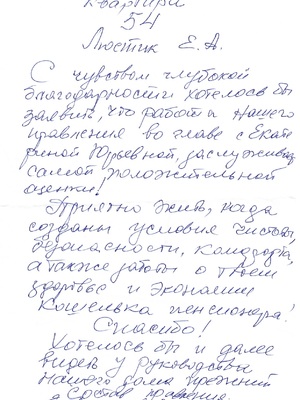 Квартира
54
Люстик Е.А.
С чувством глубокой
благодарности хотелось бы
заявить, что работа нашего
правления во главе с Екате
риной Юрьевной, заслуживает
самой положительной
оценки!
Приятно жить, когда
созданы условия чистоты,
безопасности, комфорта,
а также заботы о твоем
здоровье и экономии
кошелька пенсионера!
Спасибо!
Хотелось бы и далее
видеть у руководства
нашего дома прежний
состав правления.